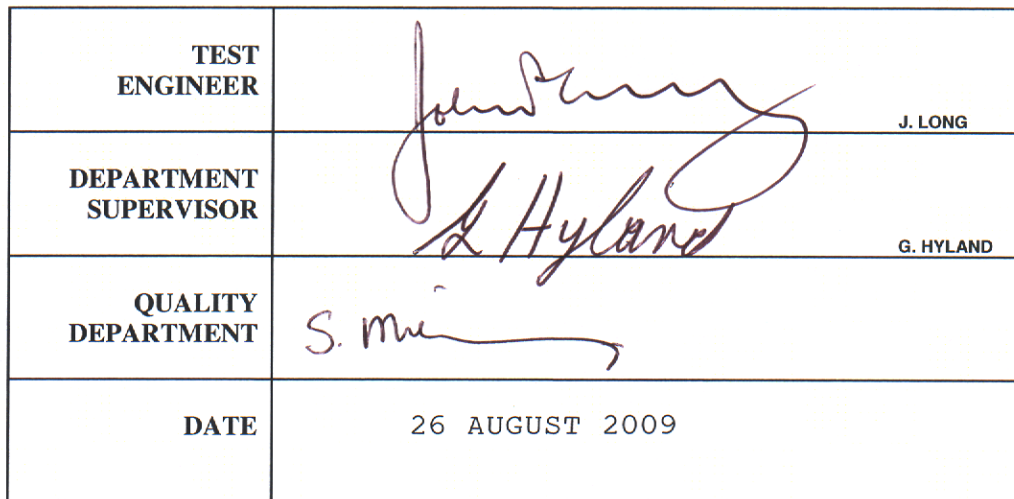 TEST
ENGINEER
John
J. LONG
DEPARTMENT
SUPERVISOR
G Hyland
G. HYLAND
QUALITY
DEPARTMENT
S.
DATE
26 AUGUST 2009